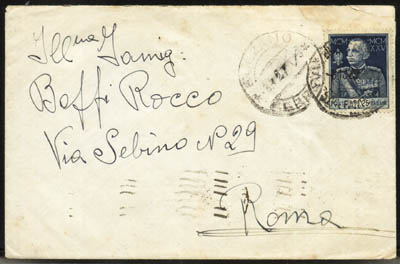 Ill.ma Famig:
Boffi Rocco
Via Sebino N 29
Roma
MCM
XXV